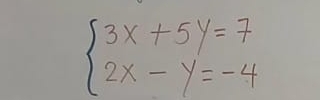 3x + 5y = 7
2x - y = -4